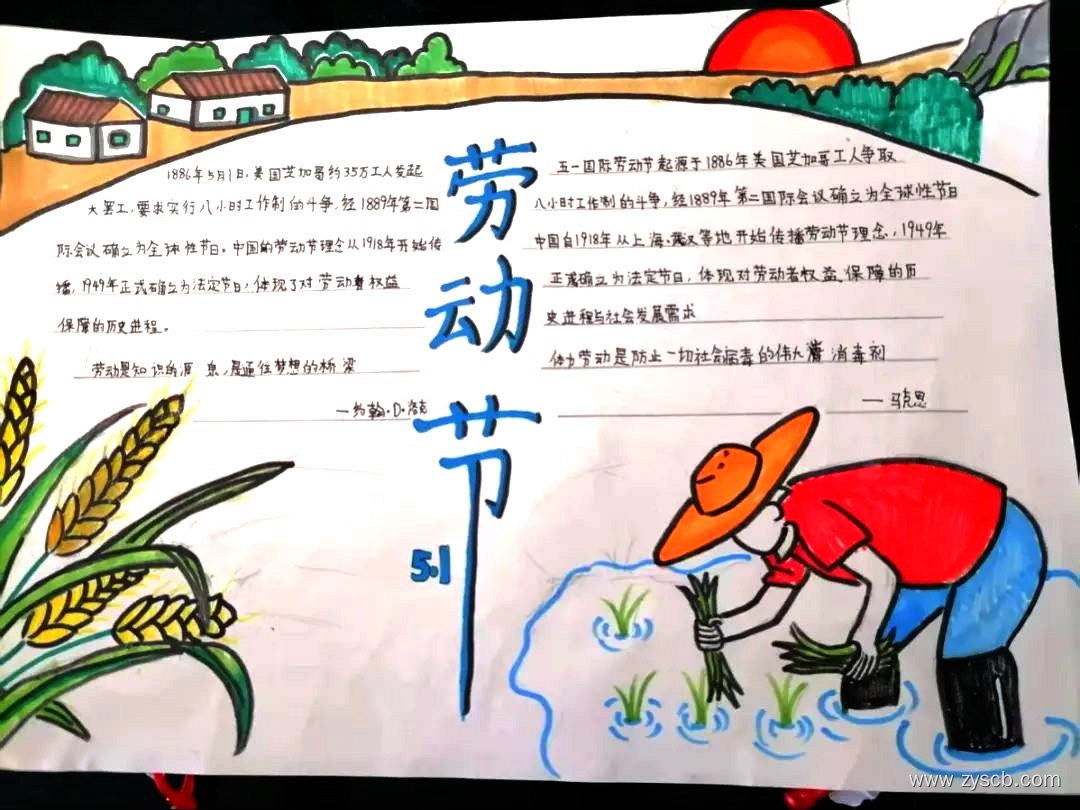 劳动节
5.1
1886年5月1日,美国芝加哥约35万工人发起
大罢工,要求实行八小时工作制的斗争,经1889年第二国
际会议确立为全球性节日。中国的劳动节理念从1918年开始传
播,1949年正式确立为法定节日,体现了对劳动者权益
保障的历史进程。
劳动是知识的源泉,是通往梦想的桥梁
—约翰·D·洛克
五一国际劳动节起源于1886年美国芝加哥工人争取
八小时工作制的斗争,经1889年第二国际会议确立为全球性节日
中国自1918年从上海、武汉等地开始传播劳动节理念,1949年
正式确立为法定节日,体现对劳动者权益、保障的历
史进程与社会发展需求
体力劳动是防止一切社会病毒的伟大消毒剂
—马克思
www.zyscb.com